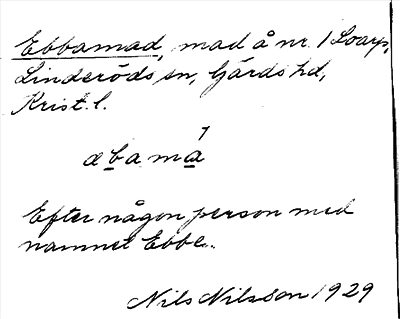 Ebbamad, mad å nr. 1 Loarp,
Linderöds sn, Gärds hd,
Krist. l.
æbama ́
Efter någon person med
namnet Ebbe.
Nils Nilsson 1929